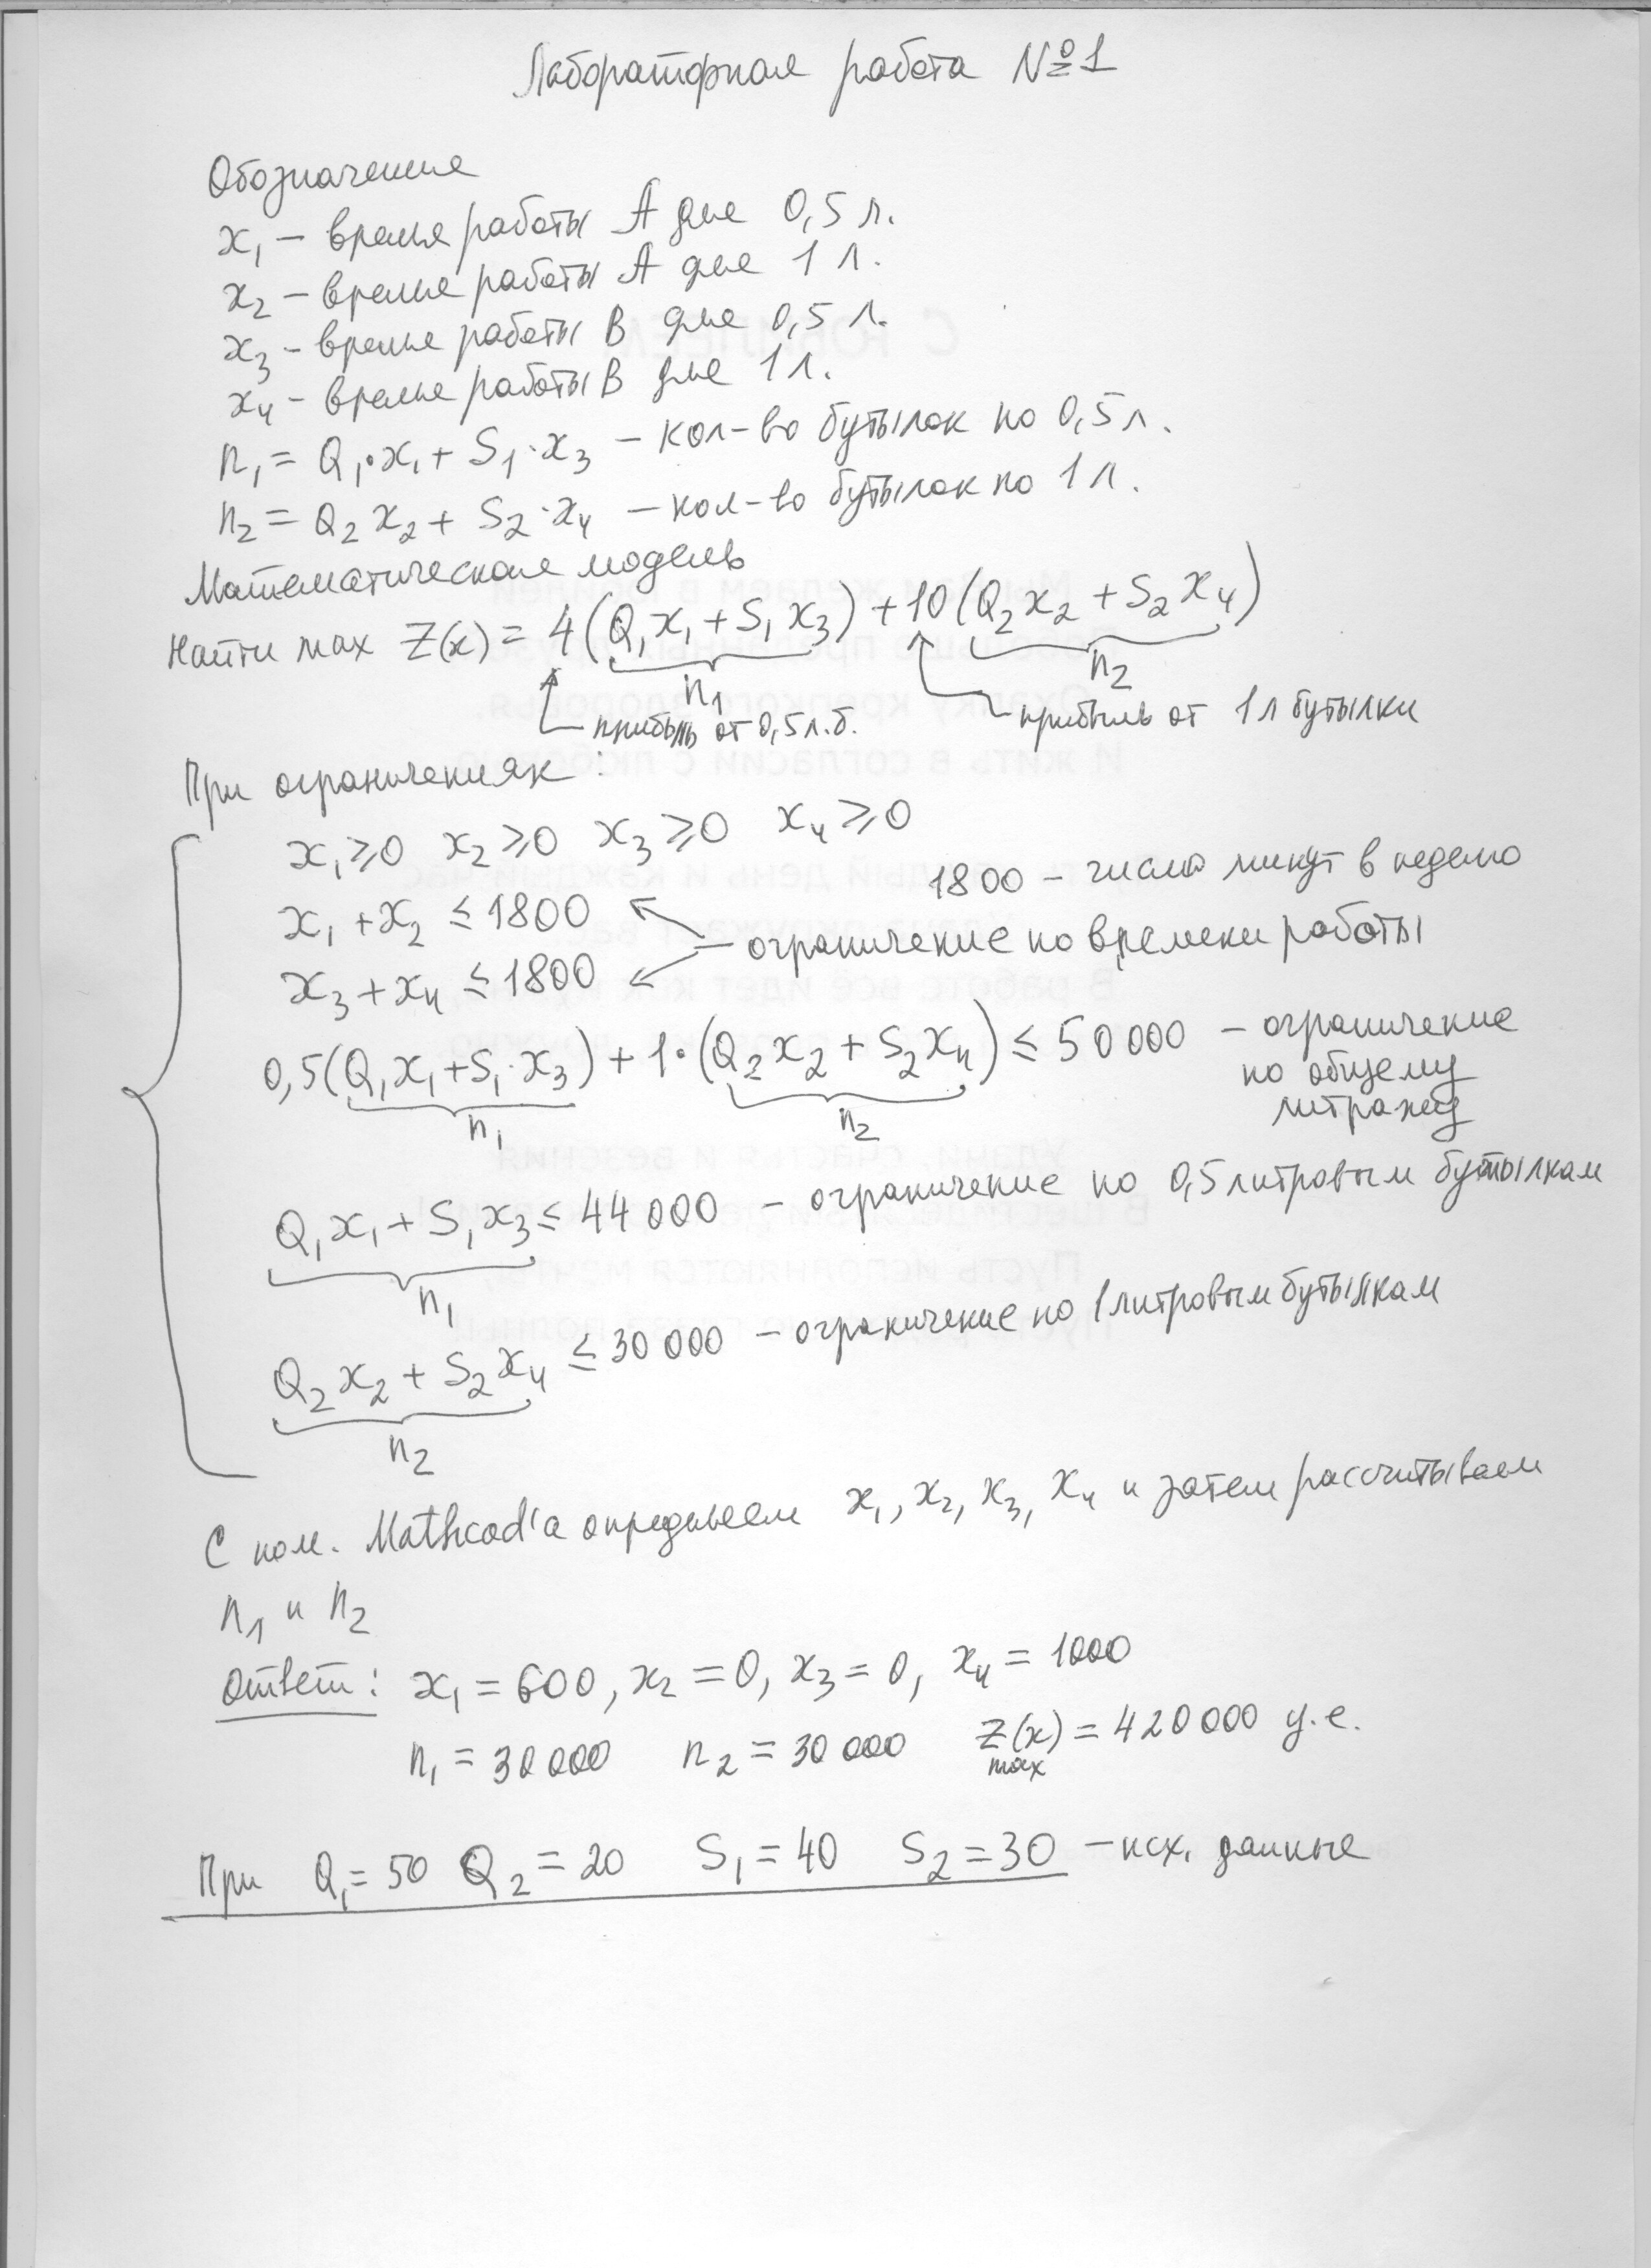 Лабораторная работа №1
Обозначения
x₁ – время работы A для 0,5 л.
x₂ – время работы A для 1 л.
x₃ – время работы B для 0,5 л.
x₄ – время работы B для 1 л.
n₁ = Q₁·x₁ + S₁·x₃ – кол-во бутылок по 0,5 л.
n₂ = Q₂x₂ + S₂·x₄ – кол-во бутылок по 1 л.
Математическая модель
Найти max Z(x) = 4(Q₁x₁ + S₁x₃) + 10(Q₂x₂ + S₂x₄)
n₁ n₂
прибыль от 0,5 л.б. прибыль от 1 л бутылки
При ограничениях:
x₁ ≥ 0 x₂ ≥ 0 x₃ ≥ 0 x₄ ≥ 0
1800 – число минут в неделю
x₁ + x₂ ≤ 1800
– ограничение по времени работы
x₃ + x₄ ≤ 1800
0,5(Q₁x₁ + S₁·x₃) + 1·(Q₂x₂ + S₂x₄) ≤ 50 000 – ограничение
по общему
литражу
n₁ n₂
Q₁x₁ + S₁x₃ ≤ 44 000 – ограничение по 0,5 литровым бутылкам
n₁
Q₂x₂ + S₂x₄ ≤ 30 000 – ограничение по 1 литровым бутылкам
n₂
С пом. Mathcad'a определяем x₁, x₂, x₃, x₄ и затем рассчитываем
n₁ и n₂
Ответ: x₁ = 600, x₂ = 0, x₃ = 0, x₄ = 1000
n₁ = 30 000 n₂ = 30 000 Z(x) = 420 000 у.е.
max
При Q₁ = 50 Q₂ = 20 S₁ = 40 S₂ = 30 – исх. данные